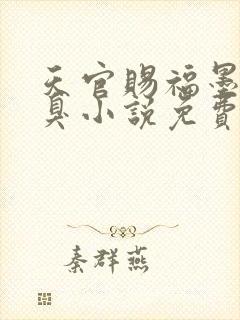 天官賜福墨
臭小説免費
秦群燕